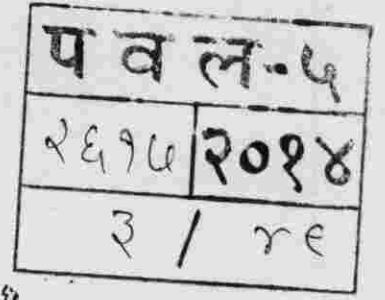 प व ल-५
२६१५ २०१४
३ / ४९